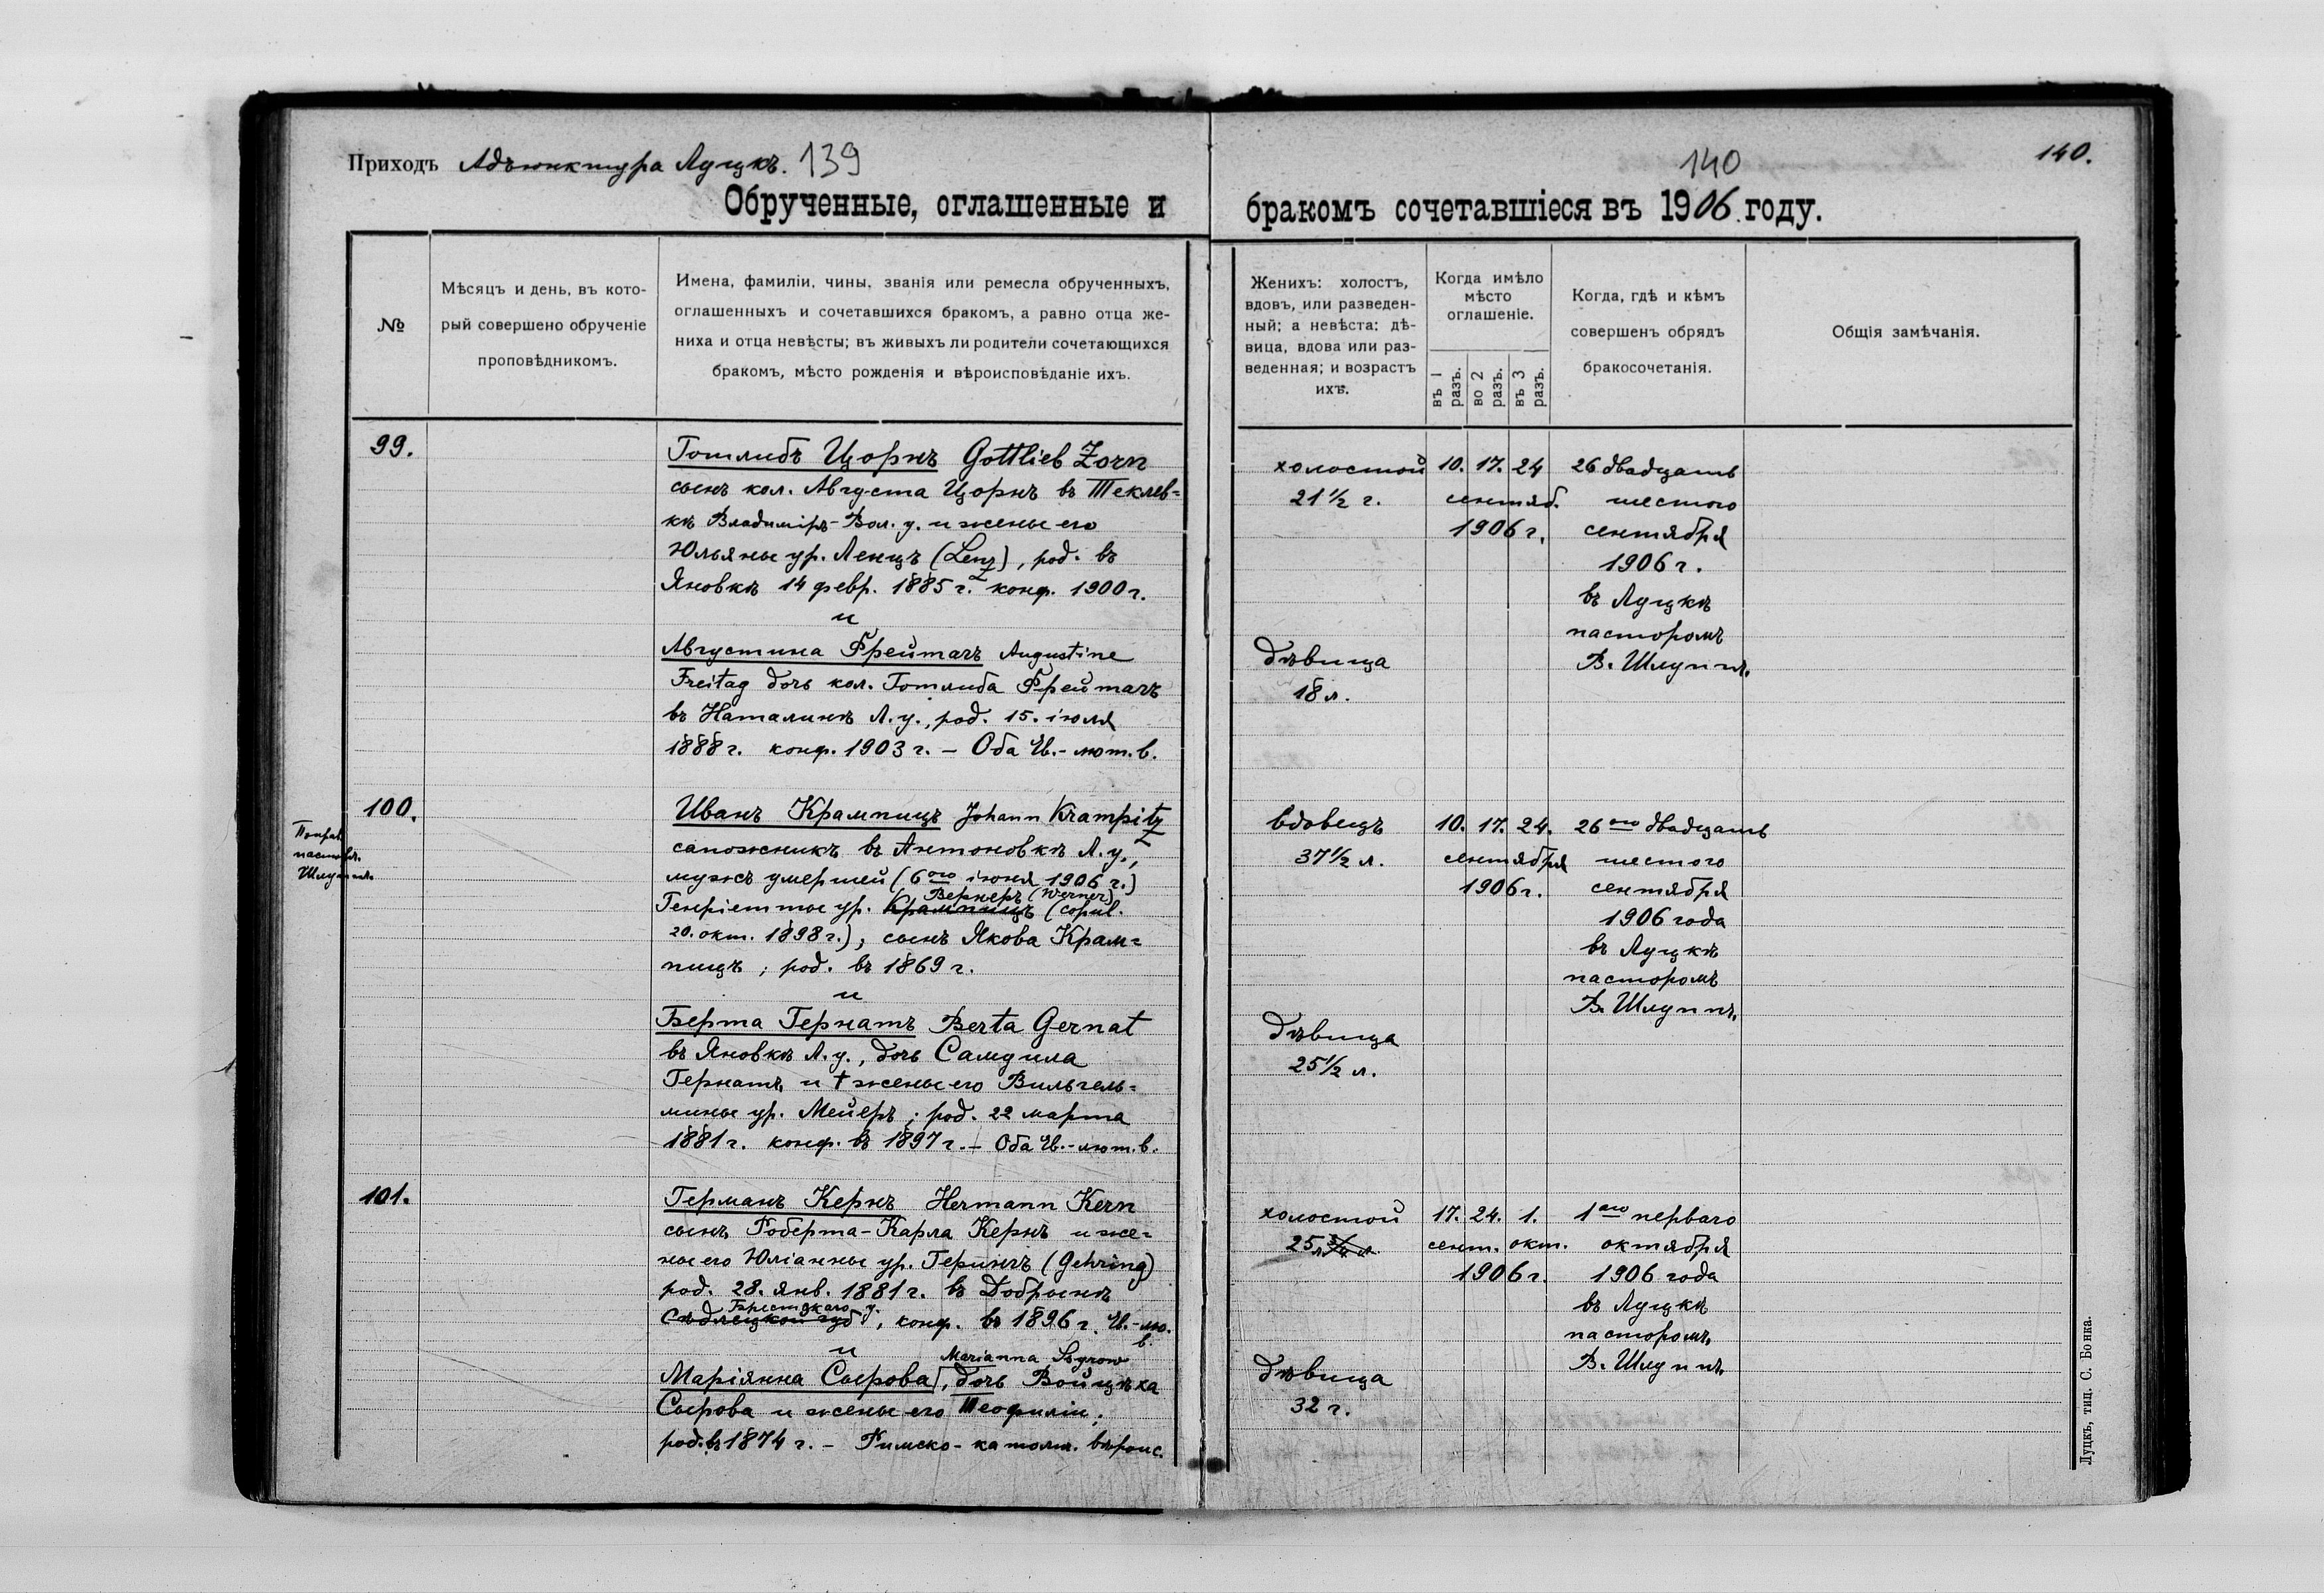 Приходъ Адъюнктура Луцкъ. 139
Обрученные, оглашенные и
№
Мѣсяцъ и день, въ кото-
рый совершено обрученіе
проповѣдникомъ.
Имена, фамиліи, чины, званія или ремесла обрученныхъ,
оглашенныхъ и сочетавшихся бракомъ, а равно отца же-
ниха и отца невѣсты; въ живыхъ ли родители сочетающихся
бракомъ, мѣсто рожденія и вѣроисповѣданіе ихъ.
99.
Готлибъ Цорнъ Gottlieb Zorn
сынъ кол. Августа Цорнъ въ Теклев-
кѣ Владимiръ-Вол. у. и жены его
Юльяны ур. Ленцъ (Lenz), род. въ
Яновкѣ 14 февр. 1885 г. конф. 1900 г.
и
Августина Фрейтагъ Augustine
Freitag дочь кол. Готлиба Фрейтагъ
въ Наталинѣ Л. у., род. 15. iюля
1888 г. конф. 1903 г. – Оба Ев.-лют. в.
100.
Поправ.
пасторъ
Шлуппъ.
Иванъ Крампицъ Johann Krampitz
сапожникъ въ Антоновкѣ Л. у.,
мужъ умершей (6ого iюня 1906 г.)
Вернеръ (Werner)
Генрiетты ур. Крампицъ (copul.
20. окт. 1898 г.), сынъ Якова Крам-
пицъ; род. въ 1869 г.
и
Берта Гернатъ Berta Gernat
въ Яновкѣ Л. у., дочь Самуила
Гернатъ и † жены его Вильгель-
мины ур. Мейеръ; род. 22 марта
1881 г. конф. въ 1897 г. – Оба Ев.-лют. в.
101.
Германъ Кернъ Hermann Kern
сынъ Роберта-Карла Кернъ и же-
ны его Юлiанны ур. Герингъ (Gehring)
род. 28. янв. 1881 г. въ Добрынѣ
Брестскаго у.
Сѣдлецкой губ, конф. въ 1896 г. Ев.-лю.
в.
и
Marianna Syrow
Марiянна Сырова, дочь Войцѣха
Сырова и жены его Теофилiи;
род. въ 1874 г. – Римско-катол. вѣроис.
140
140.
бракомъ сочетавшіеся въ 1906. году.
Женихъ: холостъ,
вдовъ, или разведен-
ный; а невѣста: дѣ-
вица, вдова или раз-
веденная; и возрастъ
ихъ.
Когда имѣло
мѣсто
оглашеніе.
въ 1 разъ.
во 2 разъ.
въ 3 разъ.
Когда, гдѣ и кѣмъ
совершенъ обрядъ
бракосочетанія.
Общія замѣчанія.
холостой
21 ½ г.
дѣвица
18 л.
10. 17. 24
сентяб.
1906 г.
26 двадцать
шестого
сентября
1906 г.
въ Луцкѣ
пасторомъ
В. Шлуппъ.
вдовецъ
37 ½ л.
дѣвица
25 ½ л.
10. 17. 24.
сентября
1906 г.
26ого двадцать
шестого
сентября
1906 года
въ Луцкѣ
пасторомъ
В. Шлуппъ.
холостой
25 л.
дѣвица
32 г.
17. 24. 1.
сент. окт.
1906 г.
1аго перваго
октября
1906 года
въ Луцкѣ
пасторомъ
В. Шлуппъ.
Луцкъ, тип. С. Бонка.